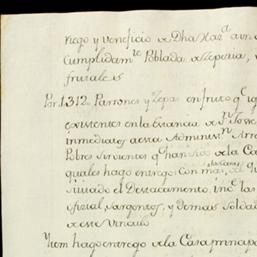 riego y veneficio a Dha Haz.ª avn
Cumplidam.te Poblada a Zeperia, y
frutales
Por 1.312. Parrones y Zepas en fruto q.e
existentes en la Estancia a S.n Josse
inmediatos a esta Administ.n
Pobres sirvientes q.e han sido a la Ca
quales hago entrego con mas,
situado el Destacamento, incl las
oficial, Sargentos, y demas Soldad
a este Vinculo
Ytem hago entrego a la Casa principa